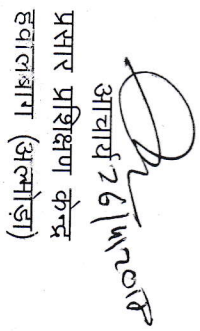 आचार्य 26/4/2018
प्रसार प्रशिक्षण केन्द्र
हवालबाग (अल्मोड़ा)